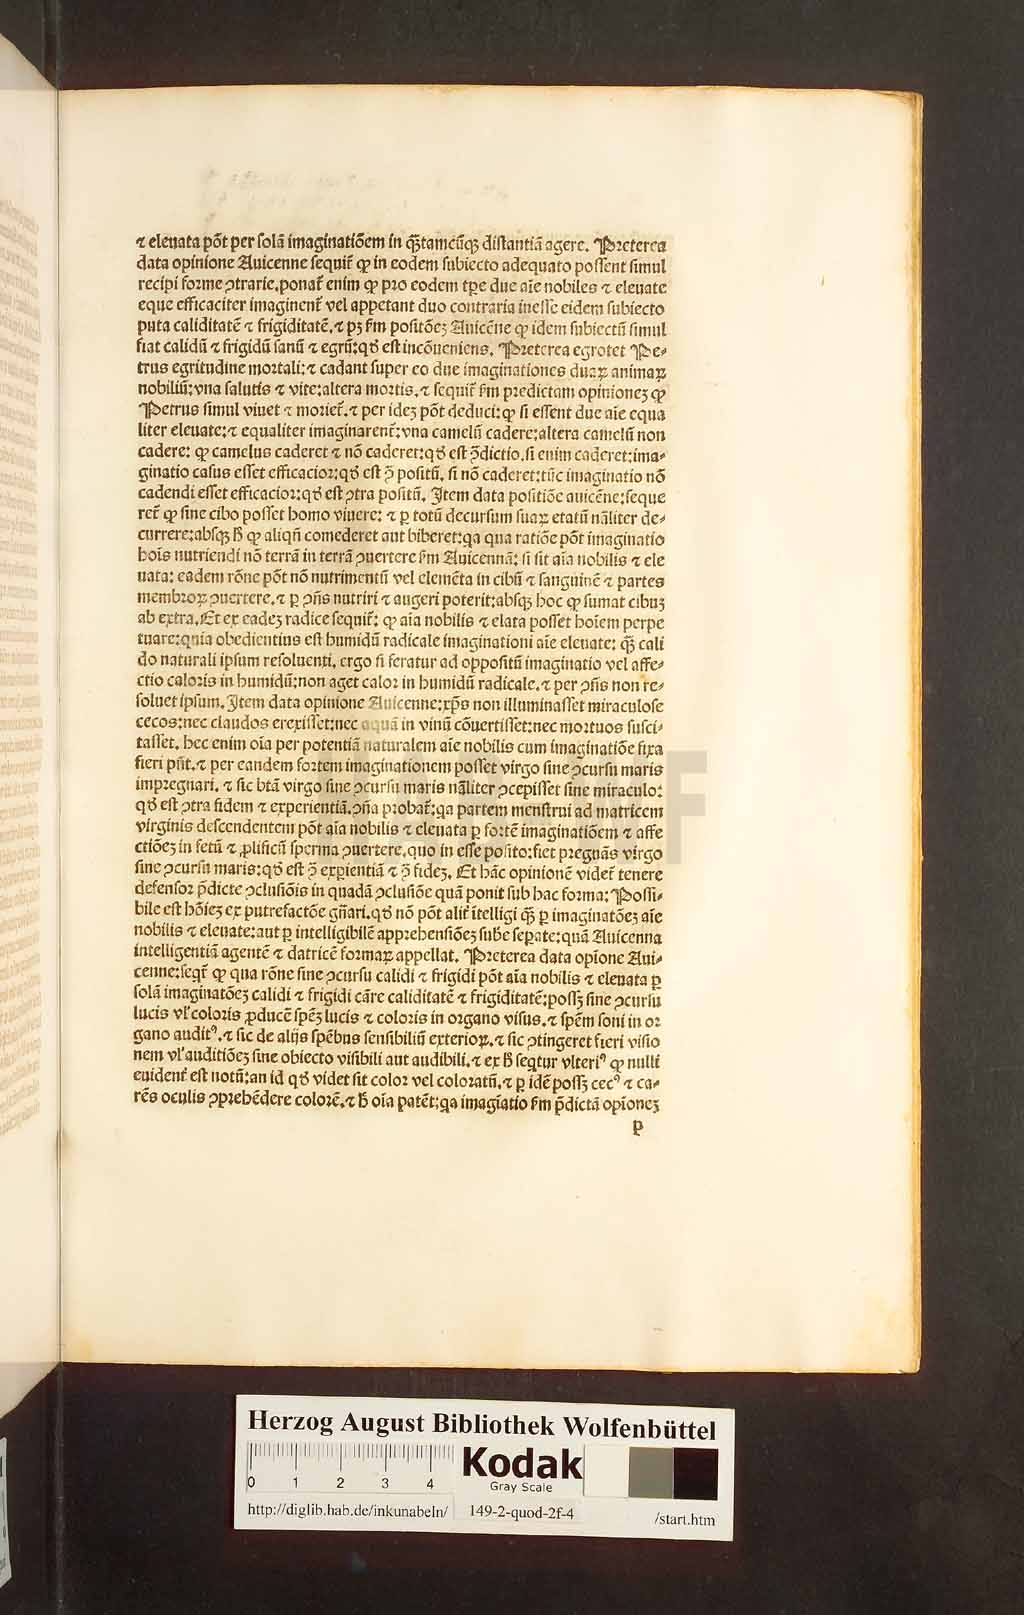 ⁊ eleuata põt per solã imaginatiõem in q̃ȝtamcũqȝ distantiã agere. Preterea
data opinione Auicenne sequit̃ ꝙ in eodem subiecto adequato possent simul
recipi forme ꝯtrarie.ponat̃ enim ꝙ pro eodem tp̃e due aĩe nobiles ⁊ eleuate
eque efficaciter imaginent̃ vel appetant duo contraria inesse eidem subiecto
puta caliditatẽ ⁊ frigiditatẽ.⁊ pȝ ẜm positõeȝ Auicẽne ꝙ idem subiectũ simul
fiat calidũ ⁊ frigidũ sanũ ⁊ egrũ:qđ est incõueniens. Preterea egrotet Pe⸗
trus egritudine mortali:⁊ cadant super eo due imaginationes duaꝝ animaꝝ
nobiliũ:vna salutis ⁊ vite:altera mortis.⁊ sequit̃ ẜm predictam opinioneȝ ꝙ
Petrus simul viuet ⁊ moriet̃.⁊ per ideȝ põt deduci:ꝙ si essent due aĩe equa
liter eleuate:⁊ equaliter imaginarent̃:vna camelũ cadere:altera camelũ non
cadere: ꝙ camelus caderet ⁊ nõ caderet:qđ est ꝯ̃dictio.si enim caderet:ima⸗
ginatio casus esset efficacior:qđ est ꝯ̃ positũ. si nõ caderet:tũc imaginatio nõ
cadendi esset efficacior:qđ est ꝯtra positũ. Item data positiõe auicẽne:seque
ret̃ ꝙ sine cibo posset homo viuere: ⁊ ꝑ totũ decursum suaꝝ etatũ nãliter de⸗
currere:absqȝ ħ ꝙ aliqñ comederet aut biberet:qa qua ratiõe põt imaginatio
hoĩs nutriendi nõ terrã in terrã ꝯuertere ẜm Auicennã: si sit aĩa nobilis ⁊ ele
uata: eadem rõne põt nõ nutrimentũ vel elemẽta in cibũ ⁊ sanguinẽ ⁊ partes
membroꝝ ꝯuertere.⁊ ꝑ ꝯñs nutriri ⁊ augeri poterit:absqȝ hoc ꝙ sumat cibuȝ
ab extra.Et ex eadeȝ radice sequit̃: ꝙ aĩa nobilis ⁊ elata posset hoĩem perpe
tuare:quia obedientius est humidũ radicale imaginationi aĩe eleuate: q̃ȝ cali
do naturali ipsum resoluenti. ergo si feratur ad oppositũ imaginatio vel affe⸗
ctio caloris in humidũ:non aget calor in humidũ radicale.⁊ per ꝯñs non re⸗
soluet ipsum. Item data opinione Auicenne:xp̃s non illuminasset miraculose
cecos:nec claudos erexisset:nec aquã in vinũ cõuertisset:nec mortuos susci⸗
tasset. hec enim oĩa per potentiã naturalem aĩe nobilis cum imaginatiõe fixa
fieri pñt.⁊ per eandem fortem imaginationem posset virgo sine ꝯcursu maris
impregnari. ⁊ sic btã virgo sine ꝯcursu maris nãliter ꝯcepisset sine miraculo:
qđ est ꝯtra fidem ⁊ experientiã.ꝯña probat̃:qa partem menstrui ad matricem
virginis descendentem põt aĩa nobilis ⁊ eleuata ꝑ fortẽ imaginatiõem ⁊ affe
ctiõeȝ in fetũ ⁊ ꝓlificũ sperma ꝯuertere.quo in esse posito:fiet pregnãs virgo
sine ꝯcursu maris:qđ est ꝯ̃ exꝑientiã ⁊ ꝯ̃ fideȝ. Et hãc opinionẽ videt̃ tenere
defensor p̃dicte ꝯclusiõis in quadã ꝯclusiõe quã ponit sub hac forma: Possi⸗
bile est hõieȝ ex putrefactõe gñari.qđ nõ põt alit̃ ĩtelligi q̃ȝ ꝑ imaginatõeȝ aĩe
nobilis ⁊ eleuate:aut ꝑ intelligibilẽ apprehensiõeȝ sub̃e seꝑate:quã Auicenna
intelligentiã agentẽ ⁊ datricẽ formaꝝ appellat. Preterea data opĩone Aui⸗
cenne:seqt̃ ꝙ qua rõne sine ꝯcursu calidi ⁊ frigidi põt aĩa nobilis ⁊ eleuata ꝑ
solã imaginatõeȝ calidi ⁊ frigidi cãre caliditatẽ ⁊ frigiditatẽ:possȝ sine ꝯcursu
lucis vl' coloris ꝓducẽ sp̃eȝ lucis ⁊ coloris in organo visus.⁊ sp̃em soni in or
gano auditꝰ.⁊ sic de alijs sp̃ebus sensibiliũ exterioꝝ.⁊ sic ꝯtingeret fieri visio
nem vl' auditiõeȝ sine obiecto visibili aut audibili.⁊ ex ħ seqtur vlteriꝰ ꝙ nulli
euident̃ est notũ:an id qđ videt sit color vel coloratũ.⁊ ꝑ idẽ possȝ cecꝰ ⁊ ca⸗
rẽs oculis ꝯprehẽdere colorẽ.⁊ ħ oĩa patẽt:qa imagĩatio ẜm p̃dictã opĩoneȝ
p
HAB WF
Herzog August Bibliothek Wolfenbüttel
0 1 2 3 4
Kodak
Gray Scale
http://diglib.hab.de/inkunabeln/ 149-2-quod-2f-4 /start.htm